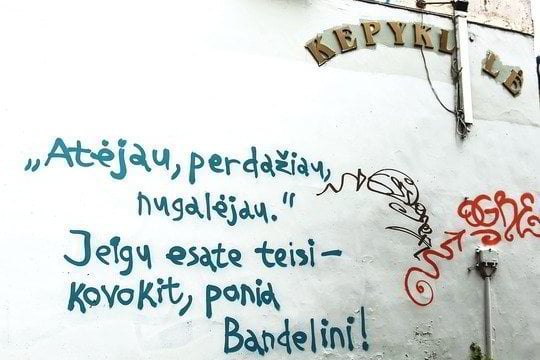 KEPYKLĖLĖ
„Atėjau, perdažiau,
nugalėjau.“
Jeigu esate teisi –
kovokit, ponia
Bandelini!